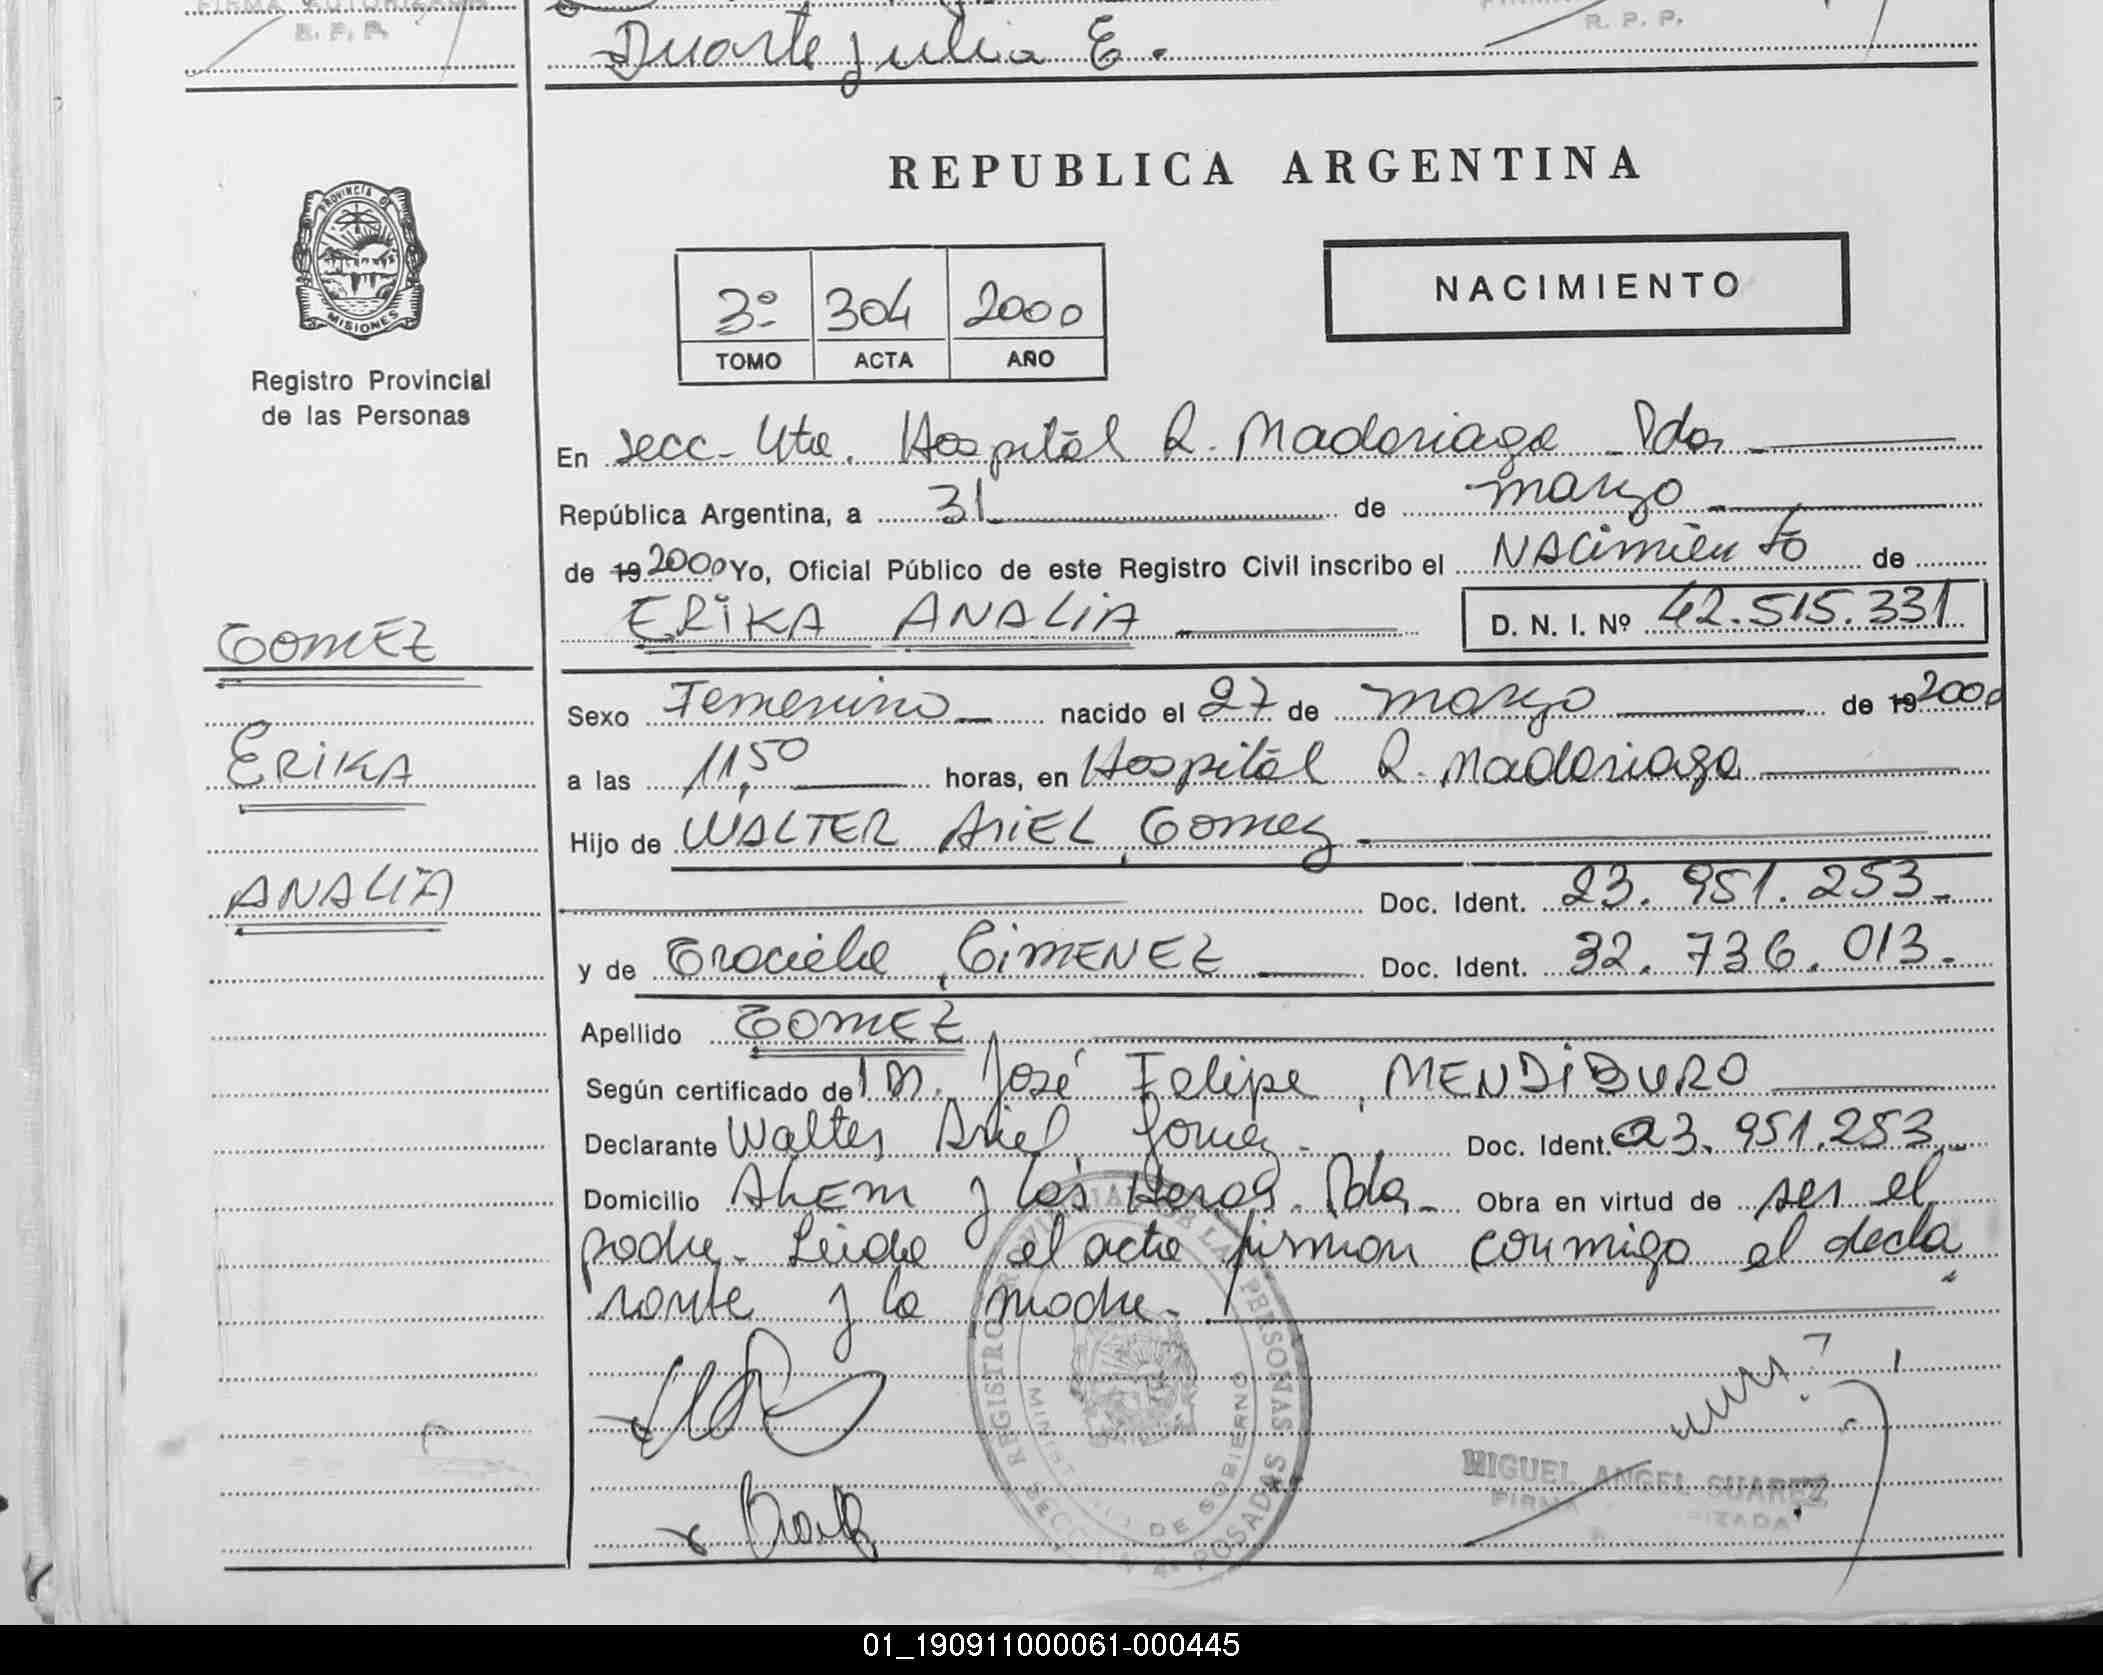 FIRMA AUTORIZADA
R. P. P.
R. P. P.
Duarte Julia E.
REPUBLICA ARGENTINA
PROVINCIA DE
MISIONES
Registro Provincial
de las Personas
3º 304 2000
TOMO ACTA AÑO
NACIMIENTO
En secc- 4ta. Hospital R. Madariaga - Pdas
República Argentina, a 31 de marzo
de 19 2000 Yo, Oficial Público de este Registro Civil inscribo el NAcimiento de
ERIKA ANALIA D. N. I. Nº 42.515.331
GOMEZ
ERIKA
ANALIA
Sexo Femenino nacido el 27 de marzo de 19 2000
a las 11,50 horas, en Hospital R. Madariaga
Hijo de WALTER ARIEL, Gomez
Doc. Ident. 23. 951. 253.
y de Graciela, GIMENEZ Doc. Ident. 32. 736. 013.
Apellido GOMEZ
Según certificado de José Felipe, MENDIBURO
Declarante Walter Ariel Gomez Doc. Ident. 23. 951.253
Domicilio ALEM y las Heras. Pdas Obra en virtud de ser el
padre. Leida el acta firman conmigo el decla
rante y la madre.
REGISTRO PROVINCIAL DE LAS PERSONAS
MINISTERIO DE GOBIERNO
SECCION 4a POSADAS
MIGUEL ANGEL SUAREZ
FIRMA AUTORIZADA
01_190911000061-000445